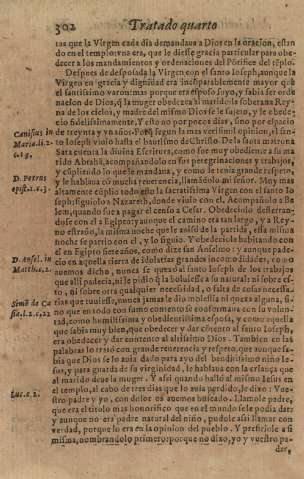 302 Tratado quarto
tas que la Virgen cada dia demandaua a Dios en la oracion, estan
do en el templo: vna era, que le diesse gracia particular para obe-
decer a los mandamientos y ordenaciones del Pontifice del tẽplo.
Despues de desposada la Virgen con el santo Ioseph, aunque la
Virgen en gracia y dignidad era incõparablemente mayor que
el santissimo varon: mas porque era esposo suyo, y sabia ser orde
nacion de Dios, q̃ la muger obedezca al marido: la soberana Rey-
na de los cielos, y madre del mismo Dios se le sujeto, y le obede-
cio fidelissimamente. Y esto no por pocos dias, sino por espacio
de treynta y vn años. Porq̃ segun la mas verisimil opinion, el san-
to Ioseph viuio hasta el bautismo de Christo. De la santa matrona
Sara cuenta la diuina Escritura, como fue muy obediente a su ma
rido Abrahã, acompañandolo en sus peregrinaciones y trabajos,
y cumpliendo lo que le mandaua, y como le tenia grande respeto,
y le hablaua cõ mucha reuerencia, llamãdolo mi señor. Muy mas
altamente cũplio todo esto la sacratissima Virgen con el santo Io
seph; siguiolo a Nazareth, donde viuio con el. Acompañolo a Be
lem, quando fue a pagar el censo a Cesar. Obedeciolo desterran-
dose con el a Egipto: y aunque el camino era tan largo, y a Rey-
no estraño, la misma noche que le auisò de la partida, essa misma
noche se partio con el, y lo siguio. Y obedeciolo habitando con
el en Egipto siete años, como dize san Anselmo: y aunque pade-
cio en aquella tierra de idolatras grandes incomodidades, como
auemos dicho, nunca se quexò al santo Ioseph de los trabajos
que alli padecia, ni le pidio q̃ la boluiesse a su natural: ni sobre es-
to, ni sobre otra qualquier necessidad, o falta de cosas necessa-
rias que tuuiesse, nunca jamas le dio molestia ni quexa alguna, si-
no que en todo con sumo contento se conformaua con su volun-
tad, como humilissima y obedientissima esposa, y como aquella
que sabia muy bien, que obedecer y dar cõtento al santo Ioseph,
era obedecer y dar contento al altissimo Dios. Tambien en las
palabras lo tratò con grande reuerencia y respeto: que aunque sa-
bia que Dios se lo auia dado para ayo del bendictissimo niño Ie-
sus, y para guarda de su virginidad, le hablaua con la criança que
al marido deue la muger. Y assi quando hallò al mismo Iesus en
el templo, al cabo de tres dias que lo auia perdido, le dixo: Vues-
tro padre y yo, con dolor os auemos buscado. Llamole padre,
que era el titulo mas honorifico que en el mundo se le podia dar:
y aunque no era padre natural del niño, pudole assi llamar con
verdad, porque lo era en la opinion del pueblo. Y prefiriole a si
misma, nombrandolo primero: porque no dixo, yo y vuestro pa-
dre,
Canisius in
Maria.li.2.
c.13.
D. Petrus
epist.1.c.3.
D. Ansel. in
Matth.c.2.
Luc.c.2.